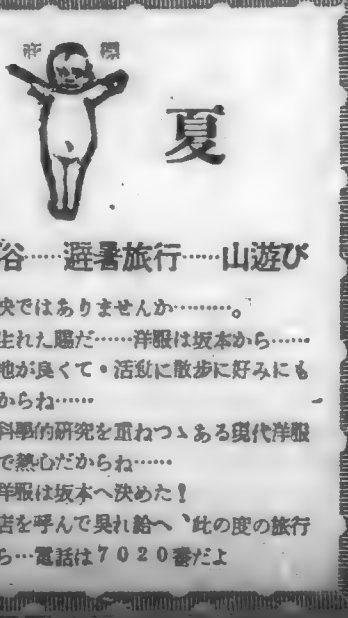 商標
夏
谷……避暑旅行……山遊び
快ではありませんか………。
生れた賜だ……洋服は坂本から……
地が良くて・活動に散歩に好みにも
からね……
科學的研究を重ねつゝある現代洋服
で熱心だからね……
洋服は坂本へ決めた!
店を呼んで呉れ給へ、此の度の旅行
ら…電話は7020番だよ